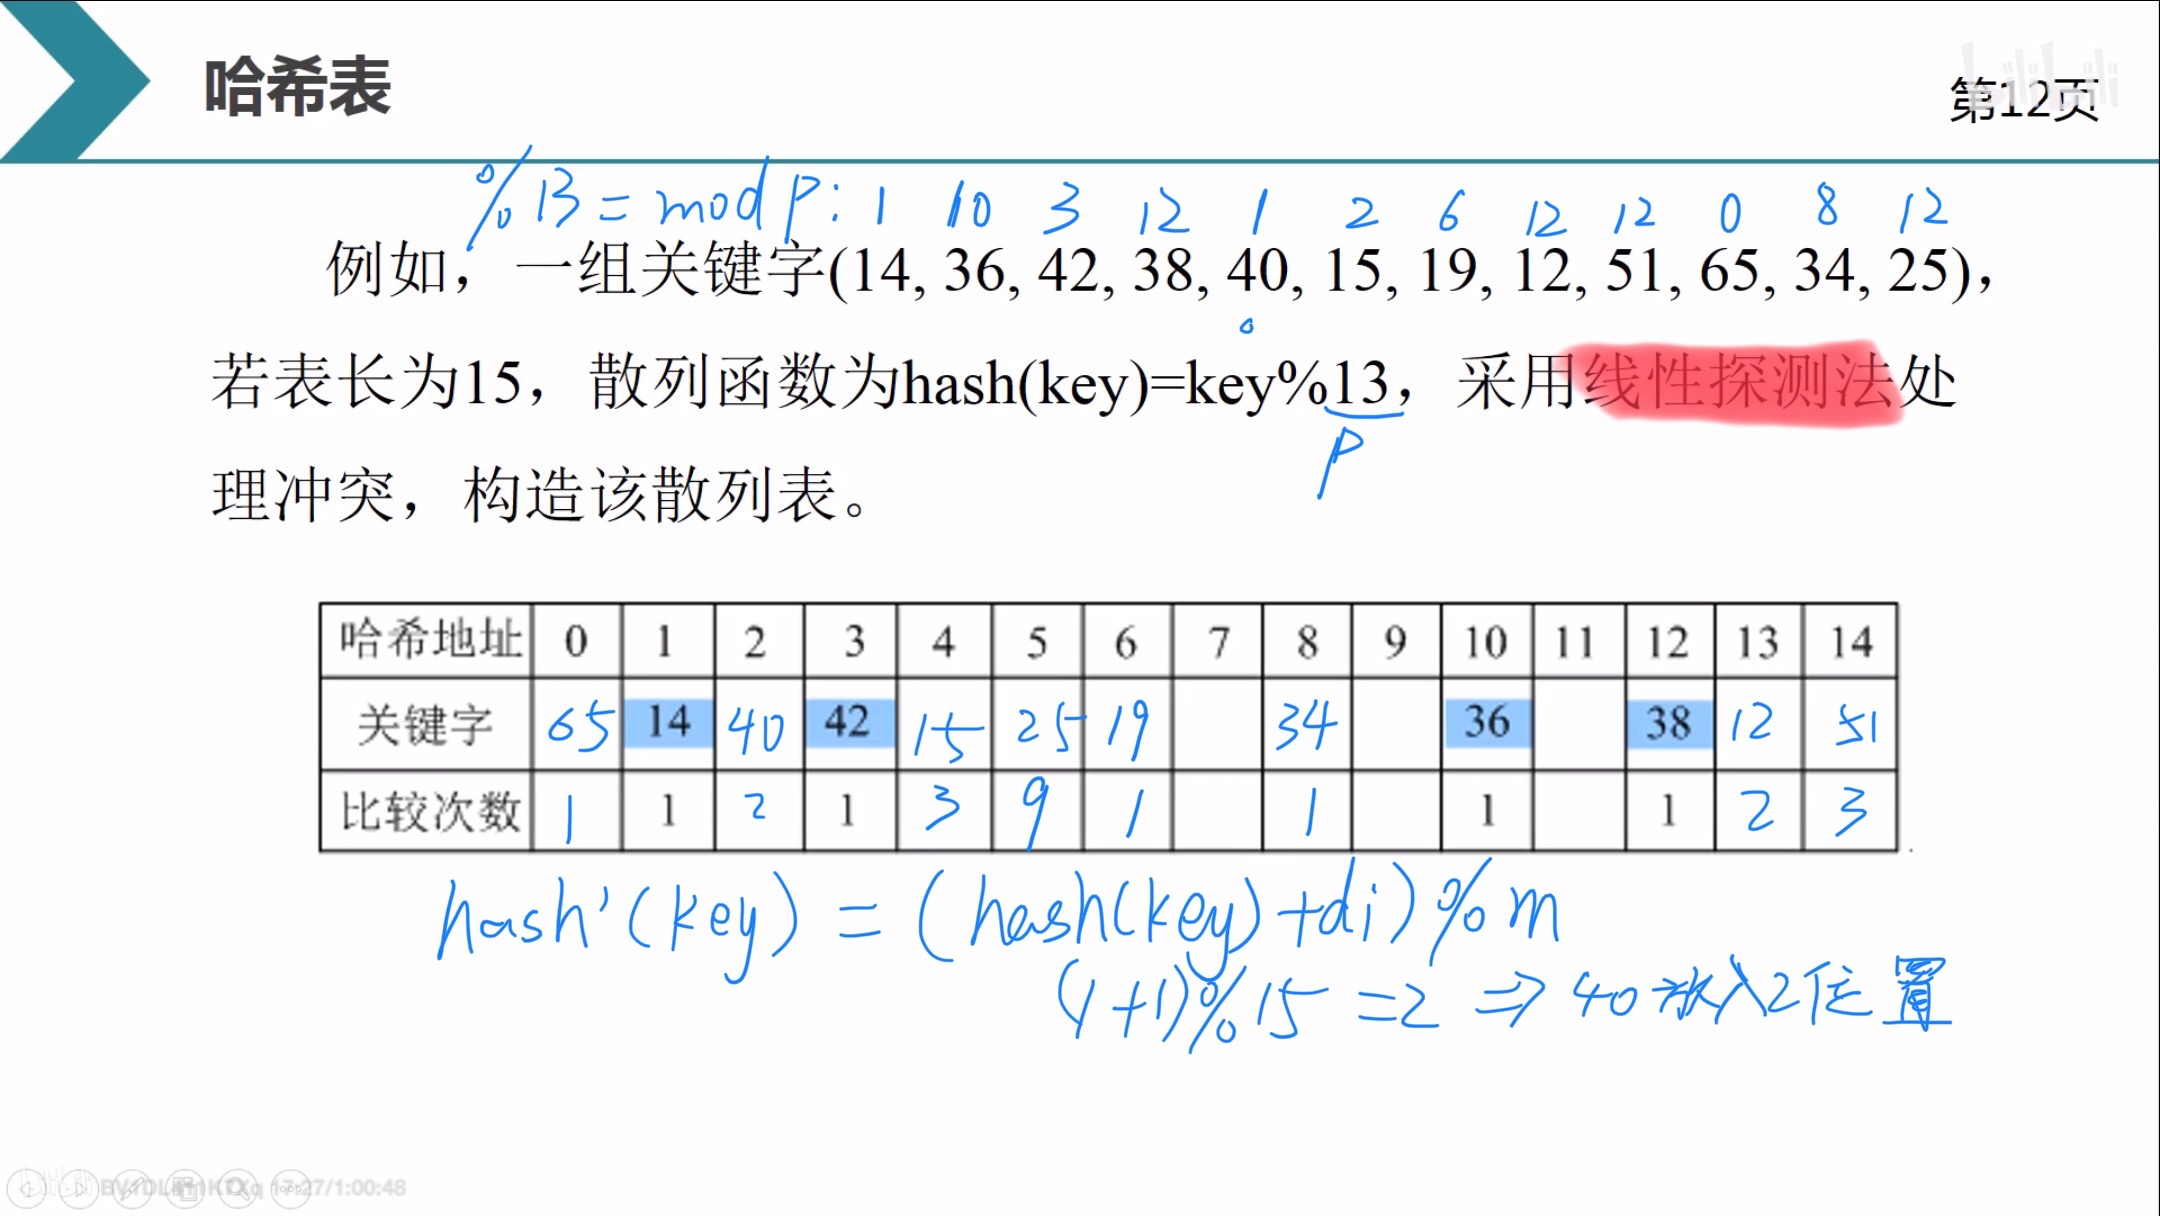 哈希表
第12页
bilibili
%13=mod P: 1 10 3 12 1 2 6 12 12 0 8 12
例如，一组关键字(14, 36, 42, 38, 40, 15, 19, 12, 51, 65, 34, 25)，
若表长为15，散列函数为hash(key)=key%13，采用线性探测法处
P
理冲突，构造该散列表。
哈希地址 0 1 2 3 4 5 6 7 8 9 10 11 12 13 14
关键字 65 14 40 42 15 25 19 34 36 38 12 51
比较次数 1 1 2 1 3 9 1 1 1 1 2 3
hash'(key) = (hash(key)+di)%m
(1+1)%15=2 ⇒ 40放入2位置
17:27/1:00:48